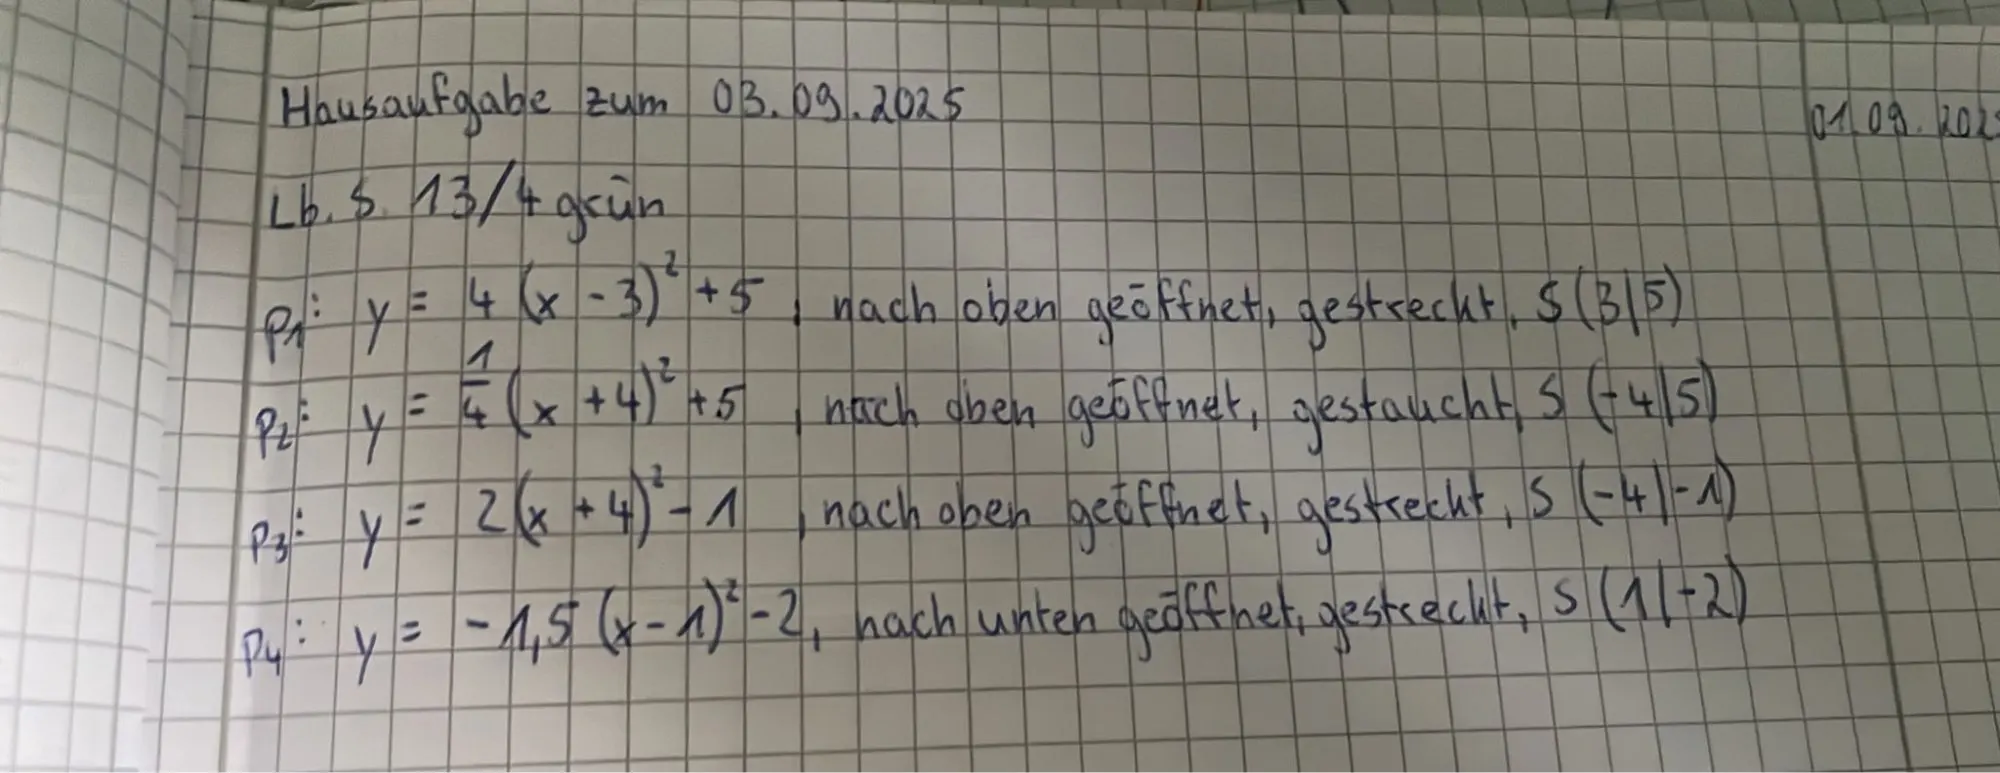 Hausaufgabe zum 03.09.2025
01.09.202
Lb. S. 13/4 grün
P1: y = 4 (x - 3)² + 5, nach oben geöffnet, gestreckt, S (3|5)
P2: y = 1/4 (x + 4)² + 5, nach oben geöffnet, gestaucht, S (-4|5)
P3: y = 2(x + 4)² - 1, nach oben geöffnet, gestreckt, S (-4|-1)
P4: y = -1,5 (x - 1)² - 2, nach unten geöffnet, gestreckt, S (1|-2)